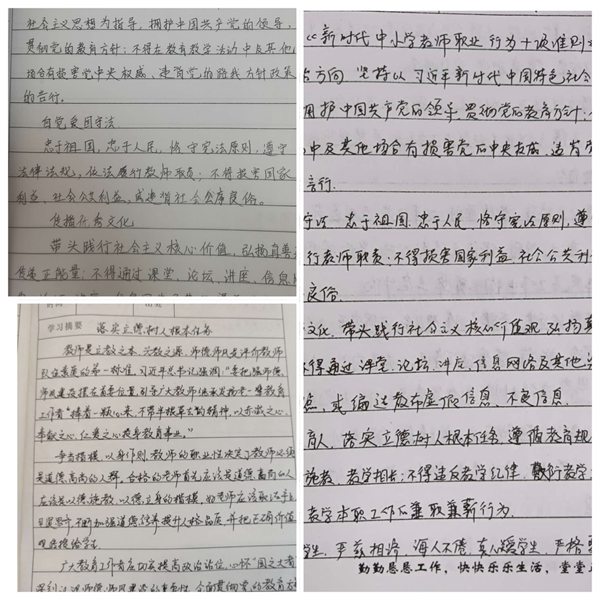 社会主义思想为指导,拥护中国共产党的领导,
贯彻党的教育方针;不得在教育教学活动中及其他
场合有损害党中央权威、违背党的路线方针政策
的言行。
自觉爱国守法
忠于祖国,忠于人民,恪守宪法原则,遵守
法律法规,依法履行教师职责;不得损害国家
利益、社会公共利益,或违背社会公序良俗。
传播优秀文化
带头践行社会主义核心价值,弘扬真善
传递正能量;不得通过课堂、论坛、讲座、信息网
学习摘要 落实立德树人根本任务
教师是立教之本、兴教之源,师德师风是评价教师
队伍素质的第一标准。习近平总书记强调:"要把师德师
风建设摆在首要位置,引导广大教师继承发扬老一辈教育
工作者"捧着一颗心来,不带半根草去"的精神,以赤诚之心、
奉献之心、仁爱之心投身教育事业。"
争当楷模,以身作则,教师的职业性决定了教师必须
是道德高尚的人群。合格的老师首先应该是道德高尚的人
应该是以德施教、以德立身的楷模。
不断加强道德修养提升人格品质,并把正确价值
观传授给学生。
广大教育工作者应切实提高政治站位,心怀"国之大者
深刻 师德师风 重要性,全面贯彻党的教育方
《新时代中小学教师职业行为十项准则》
方向 坚持以习近平新时代中国特色社会
拥护中国共产党的领导,贯彻党的教育方针;
中及其他场合有损害党的中央权威、违背党
言行.
守法 忠于祖国,忠于人民,恪守宪法原则,遵
行教师职责;不得损害国家利益,社会公共利
良俗.
文化,带头践行社会主义核心价值观,弘扬真
得通过课堂、论坛、讲座、信息网络及其他
点,或编造散布虚假信息、不良信息.
育人,落实立德树人根本任务,遵循教育规
施教,教学相长;不得违反教学纪律,敷衍教学,
教学本职工作的兼职兼薪行为.
学生,严慈相济,诲人不倦,真心关爱学生,严格要
勤勤恳恳工作,快快乐乐生活,堂堂